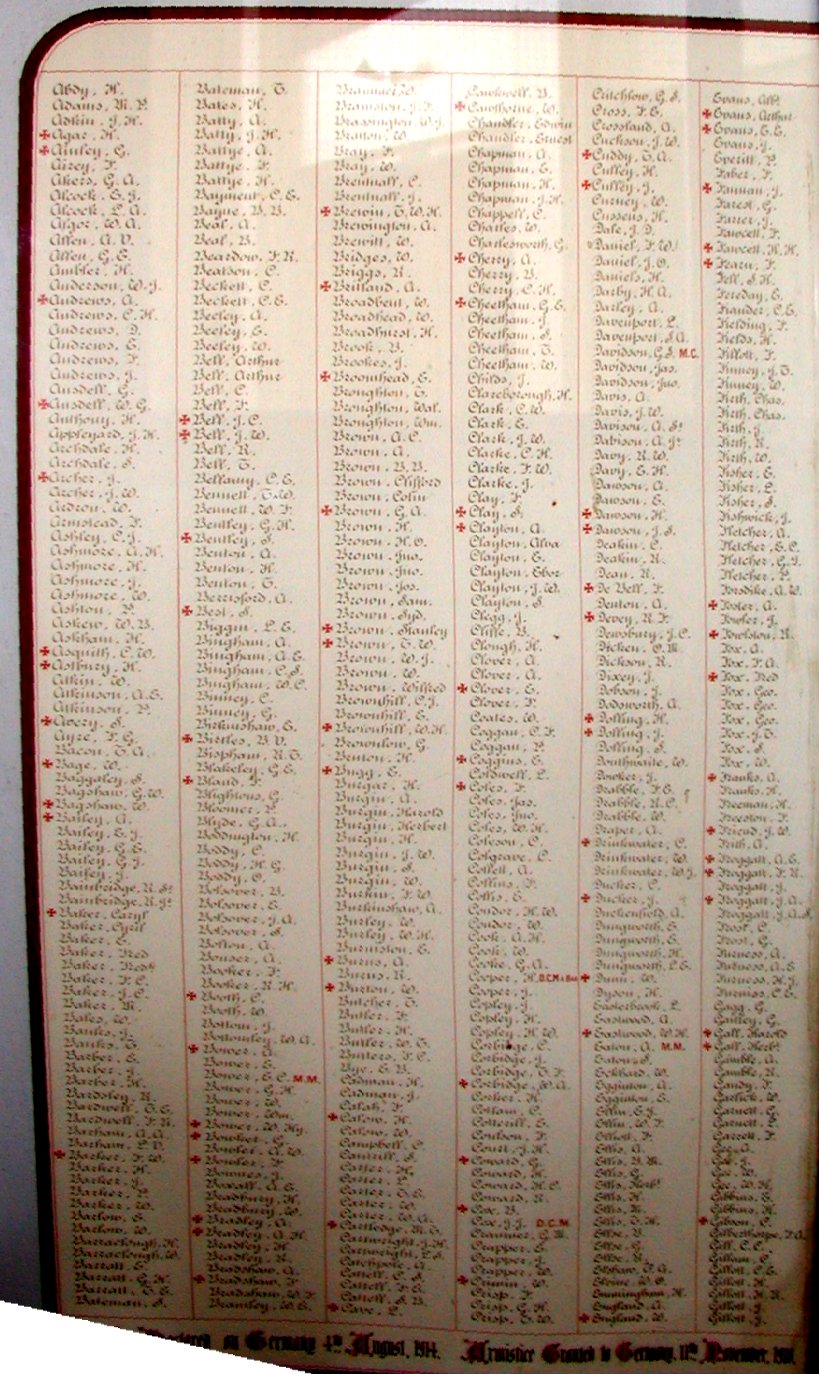 Abdy, H.
Adams, M. P.
Adkin, J. H.
✠ Agar, H.
✠ Ainley, G.
Airey, F.
Akers, G. A.
Alcock, E. J.
Alcock, L. A.
Algor, W. A.
Allen, A. V.
Allen, G. E.
Ambler, H.
Anderson, W. J.
✠ Andrews, A.
Andrews, C. H.
Andrews, D.
Andrews, E.
Andrews, F.
Andrews, J.
Ansdell, G.
✠ Ansdell, W. G.
Anthony, H.
Appleyard, J. H.
Archdale, H.
Archdale, S.
✠ Archer, J.
Archer, J. W.
Ardron, W.
Armstead, F.
Ashley, C. J.
Ashmore, A. H.
Ashmore, H.
Ashmore, J.
Ashmore, W.
Ashton, P.
Askew, W. B.
Askham, H.
✠ Asquith, C. W.
✠ Astbury, H.
Atkin, W.
Atkinson, A. E.
Atkinson, P.
✠ Avery, S.
Ayre, F. G.
Bacon, T. A.
✠ Bage, W.
Baggaley, S.
Bagshaw, G. W.
✠ Bagshaw, W.
✠ Bailey, A.
Bailey, E. J.
Bailey, G. E.
Bailey, G. J.
Bailey, J.
Bainbridge, R. Sr
Bainbridge, R. Jr
✠ Baker, Caryl
Baker, Cyril
Baker, E.
Baker, Fred
Baker, Fredk
Baker, F. C.
Baker, J. C.
Baker, M.
Bales, W.
Banks, J.
Banks, T.
Barber, E.
Barber, J.
Barber, H.
Bardsley, R.
Bardwell, T. E.
Bardwell, F. R.
Barham, A. A.
Barham, L. V.
✠ Barker, F. W.
Barker, H.
Barker, J.
Barker, P.
Barker, W.
Barlow, E.
Barlow, W.
Barraclough, H.
Barraclough, W.
Barratt, E.
Barratt, G. H.
Barratt, T. E.
Bateman, S.
Bateman, T.
Bates, H.
Batty, A.
Batty, J. H.
Battye, A.
Battye, F.
Battye, H.
Bayment, C. E.
Bayne, B. B.
Beal, A.
Beal, B.
Beardow, F. R.
Beatson, C.
Beckett, C.
Beckett, C. E.
Beeley, A.
Beeley, E.
Beeley, W.
Bell, Arthur
Bell, Arthur
Bell, C.
Bell, F.
✠ Bell, J. C.
✠ Bell, J. W.
Bell, R.
Bell, T.
Bellamy, C. E.
Bennett, T. W.
Bennett, W. F.
Bentley, G. H.
✠ Bentley, S.
Benton, A.
Benton, H.
Benton, T.
Berrisford, A.
✠ Best, S.
Biggin, L. E.
Bingham, A.
Bingham, A. E.
Bingham, C. S.
Bingham, W. C.
Binney, C.
Binney, G.
Birkinshaw, E.
✠ Birtles, B. V.
Bispham, R. T.
Blakeley, G. E.
✠ Bland, F.
Blightons, G.
Bloomer, P.
Blyde, G. A.
Boddington, H.
Boddy, C.
Boddy, H. G.
Boddy, O.
Bolsover, B.
Bolsover, E.
Bolsover, J. A.
Bolsover, S.
Bolton, A.
Bonser, A.
Booker, F.
Booker, R. H.
✠ Booth, C.
Booth, W.
Bottom, J.
Bottomley, W. A.
✠ Bower, A.
Bower, E.
Bower, E. C. M.M.
Bower, G. H.
Bower, W.
Bower, Wm.
✠ Bower, W. Hy.
✠ Bowker, G.
Bowler, A. W.
✠ Bowler, F.
Bownes, J.
Boxall, A. E.
Bradbury, H.
Bradbury, W.
✠ Bradley, A.
✠ Bradley, A. H.
Bradley, H.
Bradley, R.
Bradshaw, A.
✠ Bradshaw, F.
Bradshaw, W. F.
Bramley, W. E.
Brammer, W.
Bramston, J. F.
Brassington, W. J.
Bratton, W.
Bray, F.
Bray, W.
Brentnall, C.
Brentnall, J.
✠ Brewin, T. W. H.
Brewington, A.
Brewitt, W.
Bridges, W.
Briggs, R.
✠ Britland, A.
Broadbent, W.
Broadhead, W.
Broadhurst, H.
Brook, B.
Brookes, J.
✠ Broomhead, E.
Broughton, T.
Broughton, Wal.
Broughton, Wm.
Brown, A. C.
Brown, A.
Brown, B. B.
Brown, Clifford
Brown, Colin
✠ Brown, G. A.
Brown, H.
Brown, H. O.
Brown, Jno.
Brown, Jno.
Brown, Jos.
Brown, Sam.
Brown, Syd.
✠ Brown, Stanley
✠ Brown, T. W.
Brown, W. J.
Brown, W.
Brown, Wilfred
Brownhill, C. J.
Brownhill, E.
✠ Brownhill, W. H.
Brownlow, G.
Bruton, H.
✠ Bugg, E.
Burgar, H.
Burgin, A.
Burgin, Harold
Burgin, Herbert
Burgin, H.
Burgin, J. W.
Burgin, S.
Burgin, W.
Burkin, F. W.
Burkinshaw, A.
Burley, W.
Burley, W. H.
Burniston, E.
✠ Burns, A.
Burns, R.
✠ Burton, W.
Butcher, T.
Butler, F.
Butler, H.
Butler, W. T.
Butters, F. C.
Bye, E. B.
Cadman, H.
Cadman, J.
Calah, F.
✠ Calow, H.
Calow, W.
Campbell, C.
Cantrill, S.
Carter, H.
Carter, L.
Carter, T. E.
Carter, W.
Carter, W. A.
✠ Cartledge, M. T.
Cartwright, J. H.
Cartwright, L. S.
Catchpole, A.
Cattell, C. S.
Cattell, F. E.
Cattell, S. B.
✠ Cave, L.
Cawkwell, B.
✠ Cawthorne, W.
Chandler, Edwin
Chandler, Ernest
Chapman, A.
Chapman, E.
Chapman, H.
Chapman, J. H.
Chappell, C.
Charles, W.
Charlesworth, G.
✠ Cherry, A.
Cherry, B.
Cherry, C. H.
✠ Cheetham, G. E.
Cheetham, J.
Cheetham, S.
Cheetham, T.
Cheetham, W.
Childs, J.
Clareborough, H.
Clark, C. W.
Clark, E.
Clark, J. W.
Clarke, C. H.
Clarke, F. W.
Clarke, J.
Clay, F.
✠ Clay, S.
✠ Clayton, A.
Clayton, Alva
Clayton, E.
Clayton, Ebor
Clayton, J. W.
Clayton, S.
Clegg, J.
Cliffe, B.
Clough, H.
Clover, A.
Clover, A.
✠ Clover, E.
Clover, F.
Coates, W.
Coggan, C. F.
Coggan, P.
✠ Coggins, E.
Coldwell, L.
✠ Coles, F.
Coles, Jas.
Coles, Jno.
Coles, W. H.
Coleson, C.
Colgrave, C.
Collett, A.
Collins, F.
Collis, E.
Condor, H. W.
Condor, W.
Cook, A. H.
Cook, W.
Cooke, G. A.
Cooper, H. D.C.M. & Bar
Cooper, J.
Copley, J.
Copley, H.
Copley, H. W.
Corbidge, C.
Corbidge, J.
Corbidge, T. F.
✠ Corbidge, W. A.
Corker, H.
Cottam, C.
Cotterill, E.
Coulson, F.
Court, J. H.
✠ Coward, G.
Coward, H.
Coward, H. C.
Coward, R.
✠ Cox, B.
Cox, J. J. D.C.M.
Crammer, G. M.
Crapper, E.
Crapper, J.
Crapper, W.
✠ Crimin, W.
Crisp, F.
Crisp, G. H.
Crisp, T. W.
Critchlow, G. S.
Cross, F. E.
Crossland, A.
Cuckson, J. W.
✠ Cuddy, T. A.
Culley, H.
✠ Culley, J.
Curney, W.
Cussens, H.
Dale, J. D.
Daniel, F. W.
Daniel, J. O.
Daniels, H.
Darby, H. A.
Darley, A.
Davenport, L.
Davenport, S. A.
Davidson, G. S. M.C.
Davidson, Jas.
Davidson, Jno.
Davis, A.
Davis, J. W.
Davison, A. Sr
Davison, A. Jr
Davy, R. W.
Davy, E. H.
Dawson, A.
Dawson, E.
✠ Dawson, H.
✠ Dawson, J. S.
Deakin, C.
Deakin, R.
Dean, R.
✠ De Bell, F.
Denton, A.
✠ Devey, R. F.
Dewsbury, J. C.
Dicken, O. M.
Dickson, R.
Dixey, J.
Dobson, J.
Dodsworth, A.
✠ Dolling, H.
✠ Dolling, J.
Dolling, S.
Douthwaite, W.
Dowker, J.
Drabble, F. E.
Drabble, R. C.
Drabble, W.
Draper, A.
✠ Drinkwater, C.
Drinkwater, W.
Drinkwater, W. J.
Ducker, C.
✠ Ducker, J.
Duckenfield, A.
Dungworth, E.
Dungworth, E.
Dungworth, H.
Dungworth, L. E.
✠ Dunn, W.
Dyson, H.
Easterbrook, L.
Eastwood, A.
✠ Eastwood, W. H.
Eaton, A. M.M.
Eaton, S.
Eckhard, W.
Egginton, A.
Egginton, E.
Ellin, E. J.
Ellin, W. F.
Elliott, F.
Ellis, A.
Ellis, B. M.
Ellis, G.
Ellis, Herbt
Ellis, H.
Ellis, R.
Ellis, T. H.
Elloe, B.
Elloe, G.
Elloe, R.
Elshaw, F. A.
Elvine, W. O.
Emmingham, H.
England, A.
✠ England, W.
Evans, Alb.
✠ Evans, Arthur
✠ Evans, E. E.
Evans, J.
Everitt, P.
Faber, F.
✠ Fannan, J.
Farest, G.
Farrer, J.
Fawcett, F.
✠ Fawcett, H. H.
✠ Fearn, F.
Fell, S. H.
Fereday, E.
Fielding, F.
Fields, H.
Fillott, F.
Finney, J. T.
Finney, W.
Firth, Chas.
Firth, Chas.
Firth, J.
Firth, R.
Firth, W.
Fisher, E.
Fisher, L.
Fisher, S.
Fishwick, J.
Fletcher, A.
Fletcher, E. C.
Fletcher, G. J.
Fletcher, P.
Forsdike, A. W.
✠ Foster, A.
Fowler, J.
✠ Fowlston, R.
Fox, A.
Fox, F. A.
✠ Fox, Fred
Fox, Geo.
Fox, Geo.
Fox, Geo.
Fox, J. T.
Fox, S.
Fox, W.
✠ Franks, A.
Franks, H.
Freeman, H.
Freeston, F.
✠ Friend, J. W.
Frith, A.
✠ Froggatt, A. E.
✠ Froggatt, F. R.
Froggatt, J.
✠ Froggatt, J. A.
Froggatt, J. A. S.
Frost, C.
Frost, G.
Furness, A.
Furness, A. E.
Furness, H. J.
Furniss, C. E.
Gagg, G.
Gaitley, G.
✠ Gall, Harold
✠ Gall, Herbt
Gamble, A.
Gamble, R.
Gandy, F.
Garlick, W.
Garnett, G.
Garnett, L.
Garrett, F.
Gee, A.
Gee, J.
Gee, W.
Gee, W. H.
Gibbins, E.
Gibbins, H.
✠ Gibson, C.
Gilberthorpe, F. A.
Gill, C. E.
Gillam, C.
Gillott, C. E.
Gillott, H.
Gillott, H. R.
Gillott, J.
Gillott, J.
on Germany 4th August, 1914. Armistice Granted to Germany, 11th November, 1918.